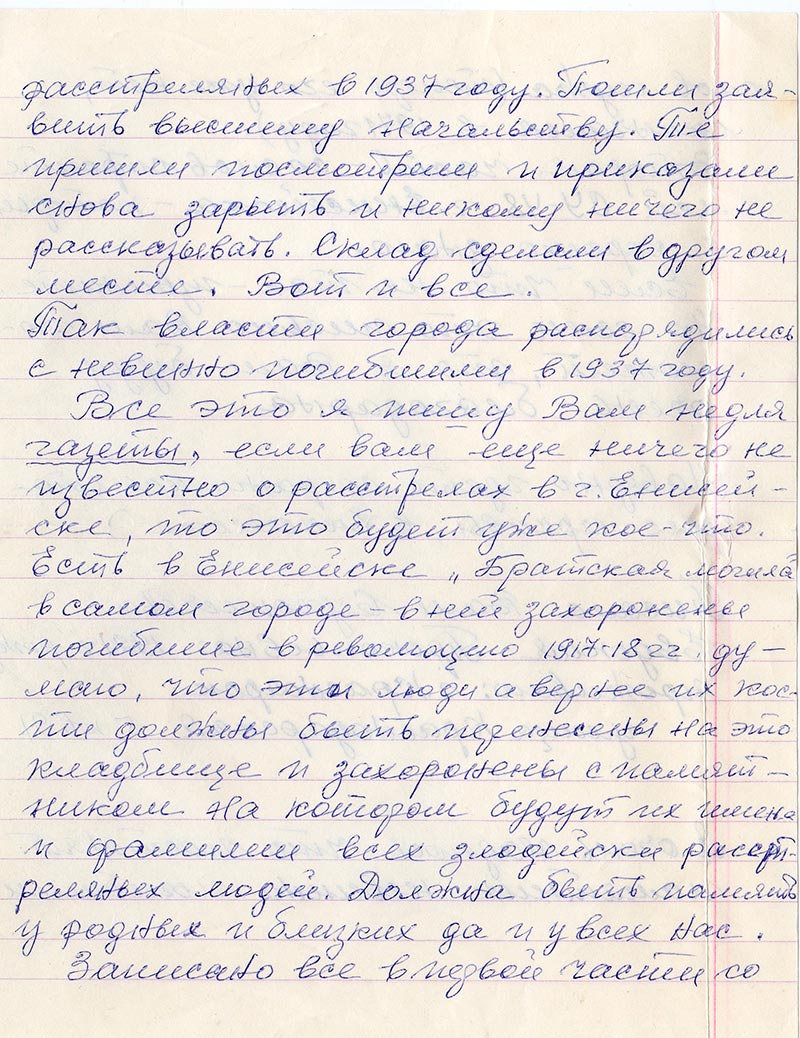 расстрелянных в 1937 году. Пошли зая-
вить высшему начальству. Те
пришли посмотрели и приказали
снова зарыть и никому ничего не
рассказывать. Склад сделали в другом
месте. Вот и все.
Так власти города распорядились
с невинно погибшими в 1937 году.
Все это я пишу Вам не для
газеты, если вам еще ничего не
известно о расстрелах в г. Енисей-
ске, то это будет уже кое-что.
Есть в Енисейске „Братская могила"
в самом городе – в ней захоронены
погибшие в революцию 1917-18 гг. ду-
маю, что эти люди а вернее их кос-
ти должны быть перенесены на это
кладбище и захоронены с памят-
ником на котором будут их имена
и фамилии всех злодейски расст-
реляных людей. Должна быть память
у родных и близких да и у всех нас.
Записано все в первой части со